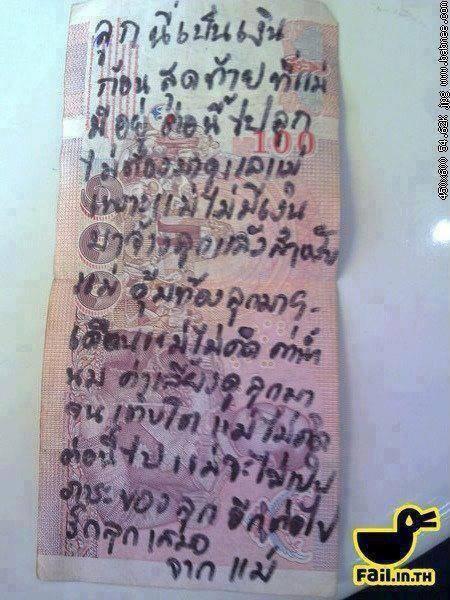 ลูก นี่เป็นเงิน
ก้อนสุดท้ายที่แม่
มีอยู่ ต่อนี้ไปลูก
100
ไม่ต้องมาดูแลแม่
เพราะแม่ไม่มีเงิน
มาจ้างลูกแล้ว
แม่ อุ้มท้องลูกมา 9
เดือนแม่ไม่คิด ค่าน้ำ
นม ค่าเลี้ยงดู ลูกมา
จน เติบโต แม่ไม่คิด
ต่อนี้ไป แม่จะไม่เป็น
ภาระของ ลูก อีกต่อไป
รักลูกเสมอ
จาก แม่
Fail.in.th
450x600 54.62K jpg www.babnee.com